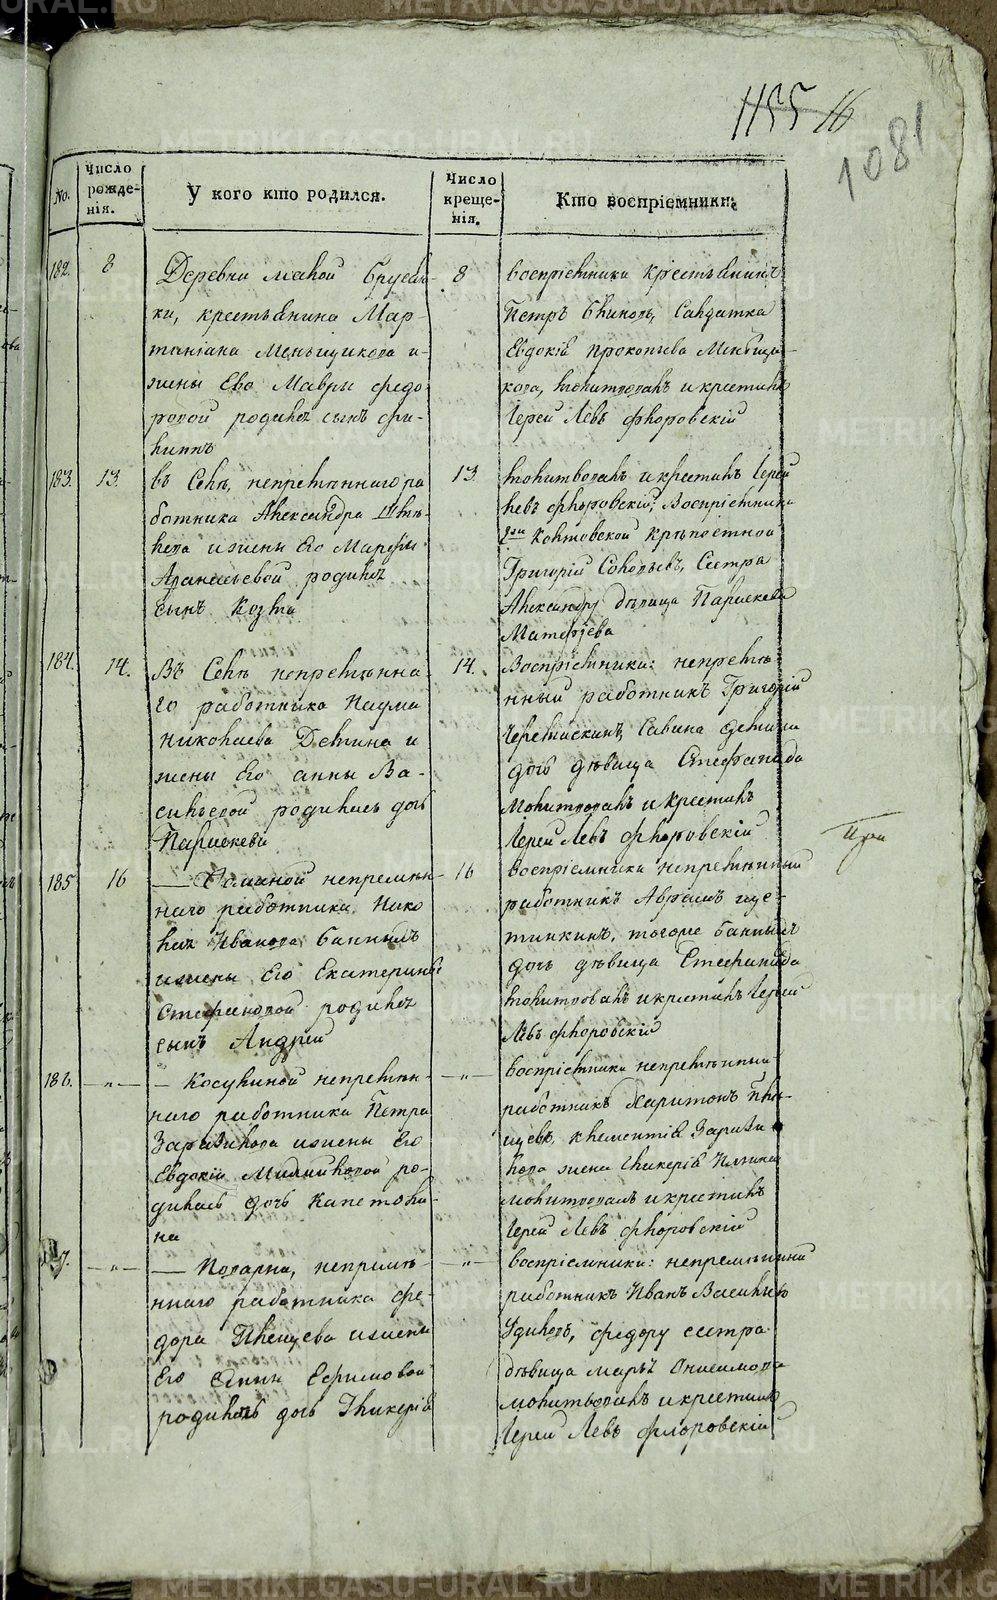 1155 16
1081
No.
Число рожде-нія.
У кого кто родился.
Число креще-нія.
Кто воспріемники.
182.
8
Деревни малой Брусян-
ки, крестьянина Мар-
тиніана Меньщикова и
жены Ево Мавры Федо-
ровой родился сынъ Фи-
липпъ
8
воспріемники крестьянинъ
Петръ Сандатка
Евдокія Прокопьева Меньщи-
кова, молитвовалъ и крестилъ
Іерей Левъ Флоровскій
183.
13.
въ Селѣ, непремѣннаго ра
ботника Александра
и жены Его Марфы
Афанасьевой родился
сынъ Козма
13.
молитвовалъ и крестилъ Іерей
Левъ Флоровскій; Воспріемники
Крѣпостной
Григорій Соловьевъ, Сестра
Александру дѣвица Параскева
Матфѣева
184.
14.
Въ Селѣ непремѣнна-
го работника Наума
Николаева Детина и
жены Его Анны Ва-
сильевой родилась дочь
Параскевія
14.
Воспріемники: непремѣ-
нный работникъ Григорій
Черемискинъ, Савина Детина
дочь дѣвица Стефанида
Молитвовалъ и крестилъ
Іерей Левъ Флоровскій
При
185
16
— Фоминой непремѣн-
наго работника Нико
лая Иванова Банныхъ
и жены Его Екатерины
Стефановой родился
сынъ Андрей
16
Воспріемники непремѣнный
работникъ Аврамъ Ще-
тинкинъ, тогоже Банныхъ
дочь дѣвица Стефанида
молитвовалъ и крестилъ Іерей
Левъ Флоровскій
186.
—"—
— Косулиной непремѣн-
наго работника Петра
и жены Его
Евдокіи ро-
дилась дочь Капетоли-
на
—"—
воспріемники непремѣнный
работникъ Харитонъ Пьян-
Климентія
жена Гликерія Ильина
молитвовалъ и крестилъ
Іерей Левъ Флоровскій
7.
—"—
— Поварни, непремѣ-
ннаго работника Фе-
дора Пьенцева и жены
Его Анны Ефимовой
родилась дочь Гликерія
—"—
воспріемники: непремѣнный
работникъ Иванъ Васильевъ
Удиловъ, Федору сестра
дѣвица Марья Онисимова
молитвовалъ и крестилъ
Іерей Левъ Флоровскій
METRIKI.GASU-URAL.RU